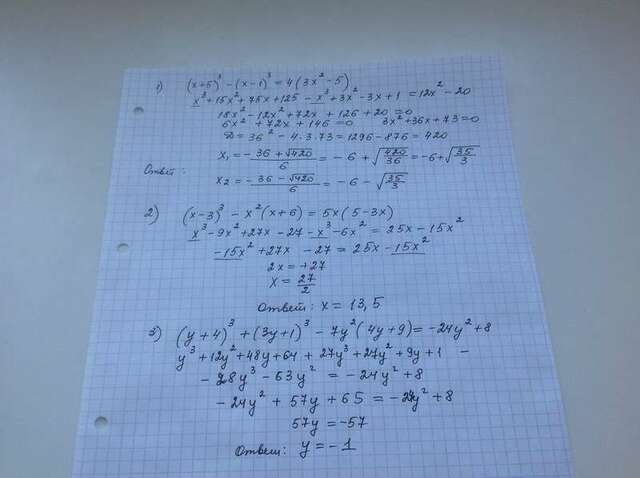 1) (x+5)³ - (x-1)³ = 4(3x² - 5)
x³ + 15x² + 75x + 125 - x³ + 3x² - 3x + 1 = 12x² - 20
18x² - 12x² + 72x + 126 + 20 = 0
6x² + 72x + 146 = 0 3x² + 36x + 73 = 0
D = 36² - 4·3·73 = 1296 - 876 = 420
x₁ = (-36 + √420)/6 = -6 + √(420/36) = -6 + √(35/3)
Ответ:
x₂ = (-36 - √420)/6 = -6 - √(35/3)
2) (x-3)³ - x²(x+6) = 5x(5-3x)
x³ - 9x² + 27x - 27 - x³ - 6x² = 25x - 15x²
-15x² + 27x - 27 = 25x - 15x²
2x = +27
x = 27/2
Ответ: x = 13,5
3) (y+4)³ + (3y+1)³ - 7y²(4y+9) = -24y² + 8
y³ + 12y² + 48y + 64 + 27y³ + 27y² + 9y + 1 -
- 28y³ - 63y² = -24y² + 8
-24y² + 57y + 65 = -24y² + 8
57y = -57
Ответ: y = -1